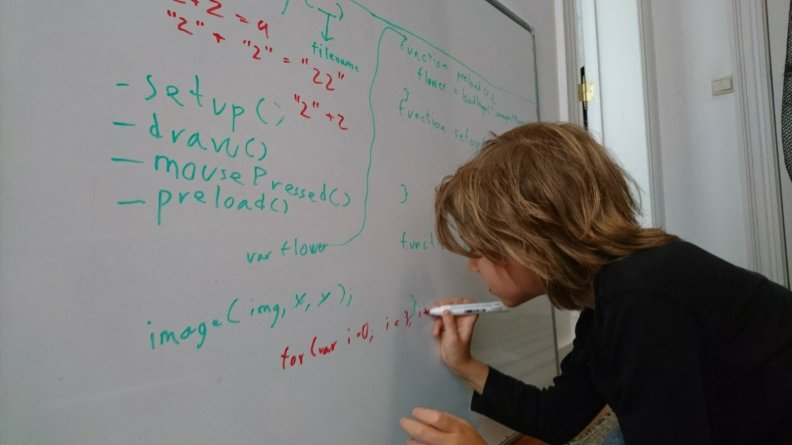 2+2=4
"2" + "2" = "22"
"2"+2
filename
- setup()
- draw()
- mousePressed()
- preload()
var flower
image(img, x, y);
for (var i=0; i<3;
function preload(){
flower =
}
function setup
}
}